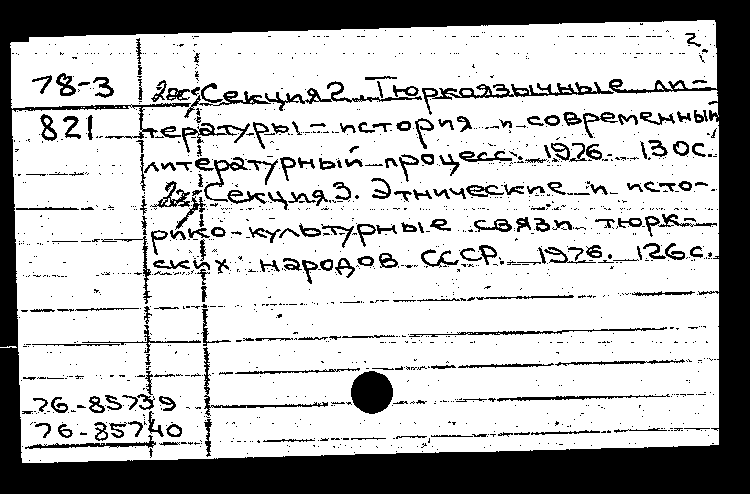 2.
78-3 2экз Секция 2. Тюркоязычные ли-
821 тературы - история и современный
литературный процесс. 1976. 130с.
2экз Секция 3. Этнические и исто-
рико-культурные связи тюрк-
ских народов СССР. 1976. 126с.
76-85739
76-85740